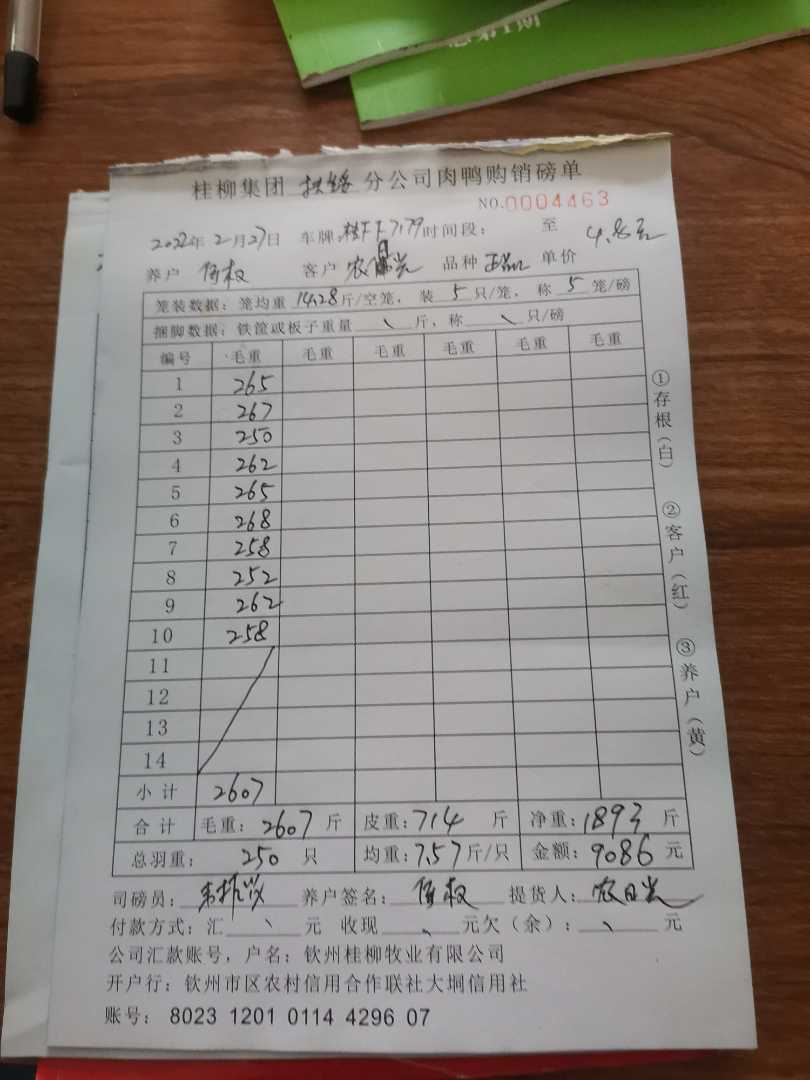 桂柳集团 分公司肉鸭购销磅单
NO.0004463
2022年2月27日 车牌: 7179 时间段: 至
养户 权 客户 农 品种 单价 4.8元
笼装数据: 笼均重 14.28 斤/空笼, 装 5 只/笼, 称 5 笼/磅
捆脚数据: 铁筐或板子重量 \ 斤, 称 \ 只/磅
编号 毛重 毛重 毛重 毛重 毛重 毛重
1 265
2 267
3 250
4 262
5 265
6 268
7 258
8 252
9 262
10 258
11
12
13
14
小计 2607
合计 毛重: 2607 斤 皮重: 714 斤 净重: 1893 斤
总羽重: 250 只 均重: 7.57 斤/只 金额: 9086 元
司磅员: 养户签名: 权 提货人: 农日光
付款方式: 汇 \ 元 收现 \ 元欠(余): \ 元
公司汇款账号, 户名: 钦州桂柳牧业有限公司
开户行: 钦州市区农村信用合作联社大垌信用社
账号: 8023 1201 0114 4296 07
①存根(白) ②客户(红) ③养户(黄)